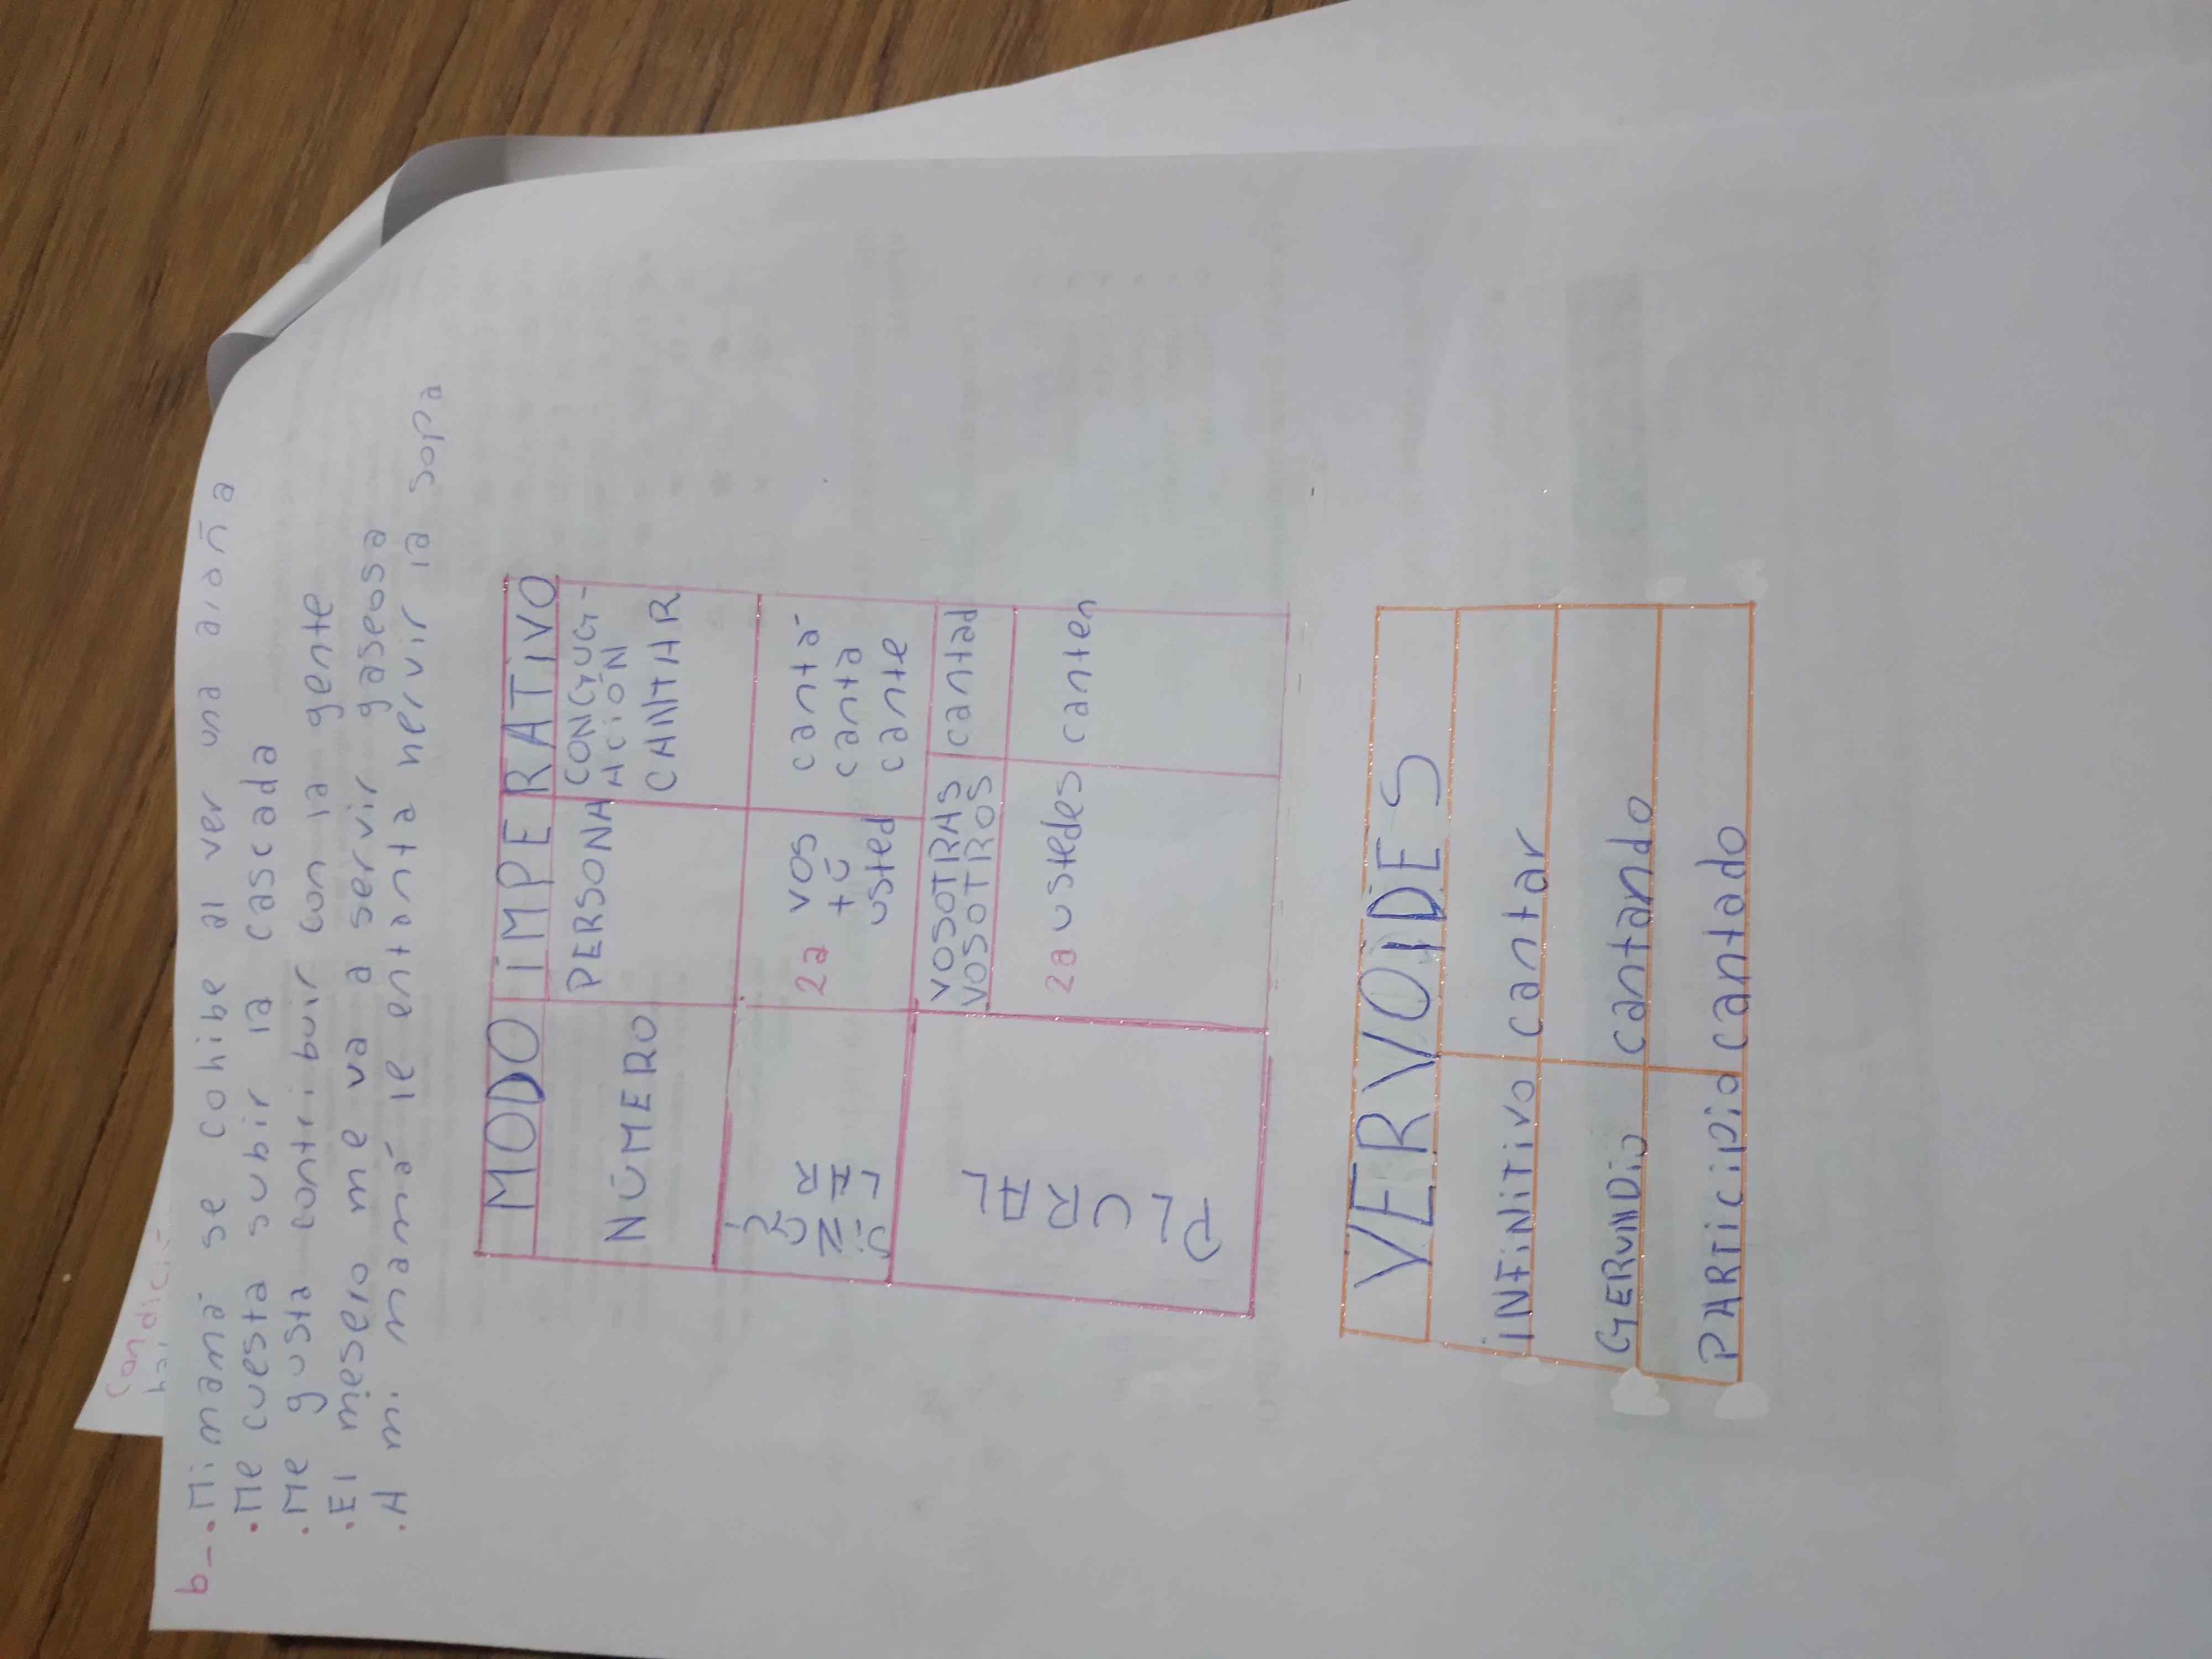 b-. Mi mamá se cohibe al ver una araña
. Me cuesta subir la cascada
. Me gusta contribuir con la gente
. El mesero me va a servir gaseosa
. A mi mamá le encanta hervir la sopa
MODO IMPERATIVO
NÚMERO PERSONA CONGUG-
ACIÓN
CANTAR
SINGU
LAR
2a vos cantá
tú canta
usted cante
PLURAL
VOSOTRAS
VOSOTROS cantad
2a ustedes canten
VERVOIDES
INFINITIVO cantar
GERUNDIO cantando
PARTICIPIO cantado